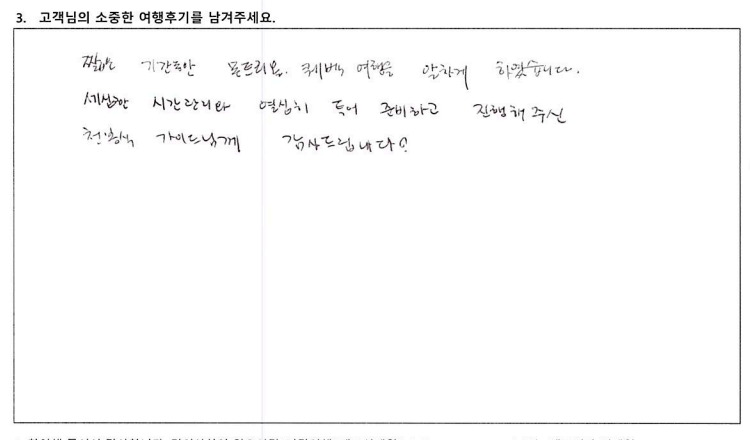 3. 고객님의 소중한 여행후기를 남겨주세요.
짧은 기간동안 몬트리올. 퀘벡 여행을 알차게 하였습니다.
세심한 시간관리와 열심히 준비하고 진행해 주신
가이드님께 감사드립니다